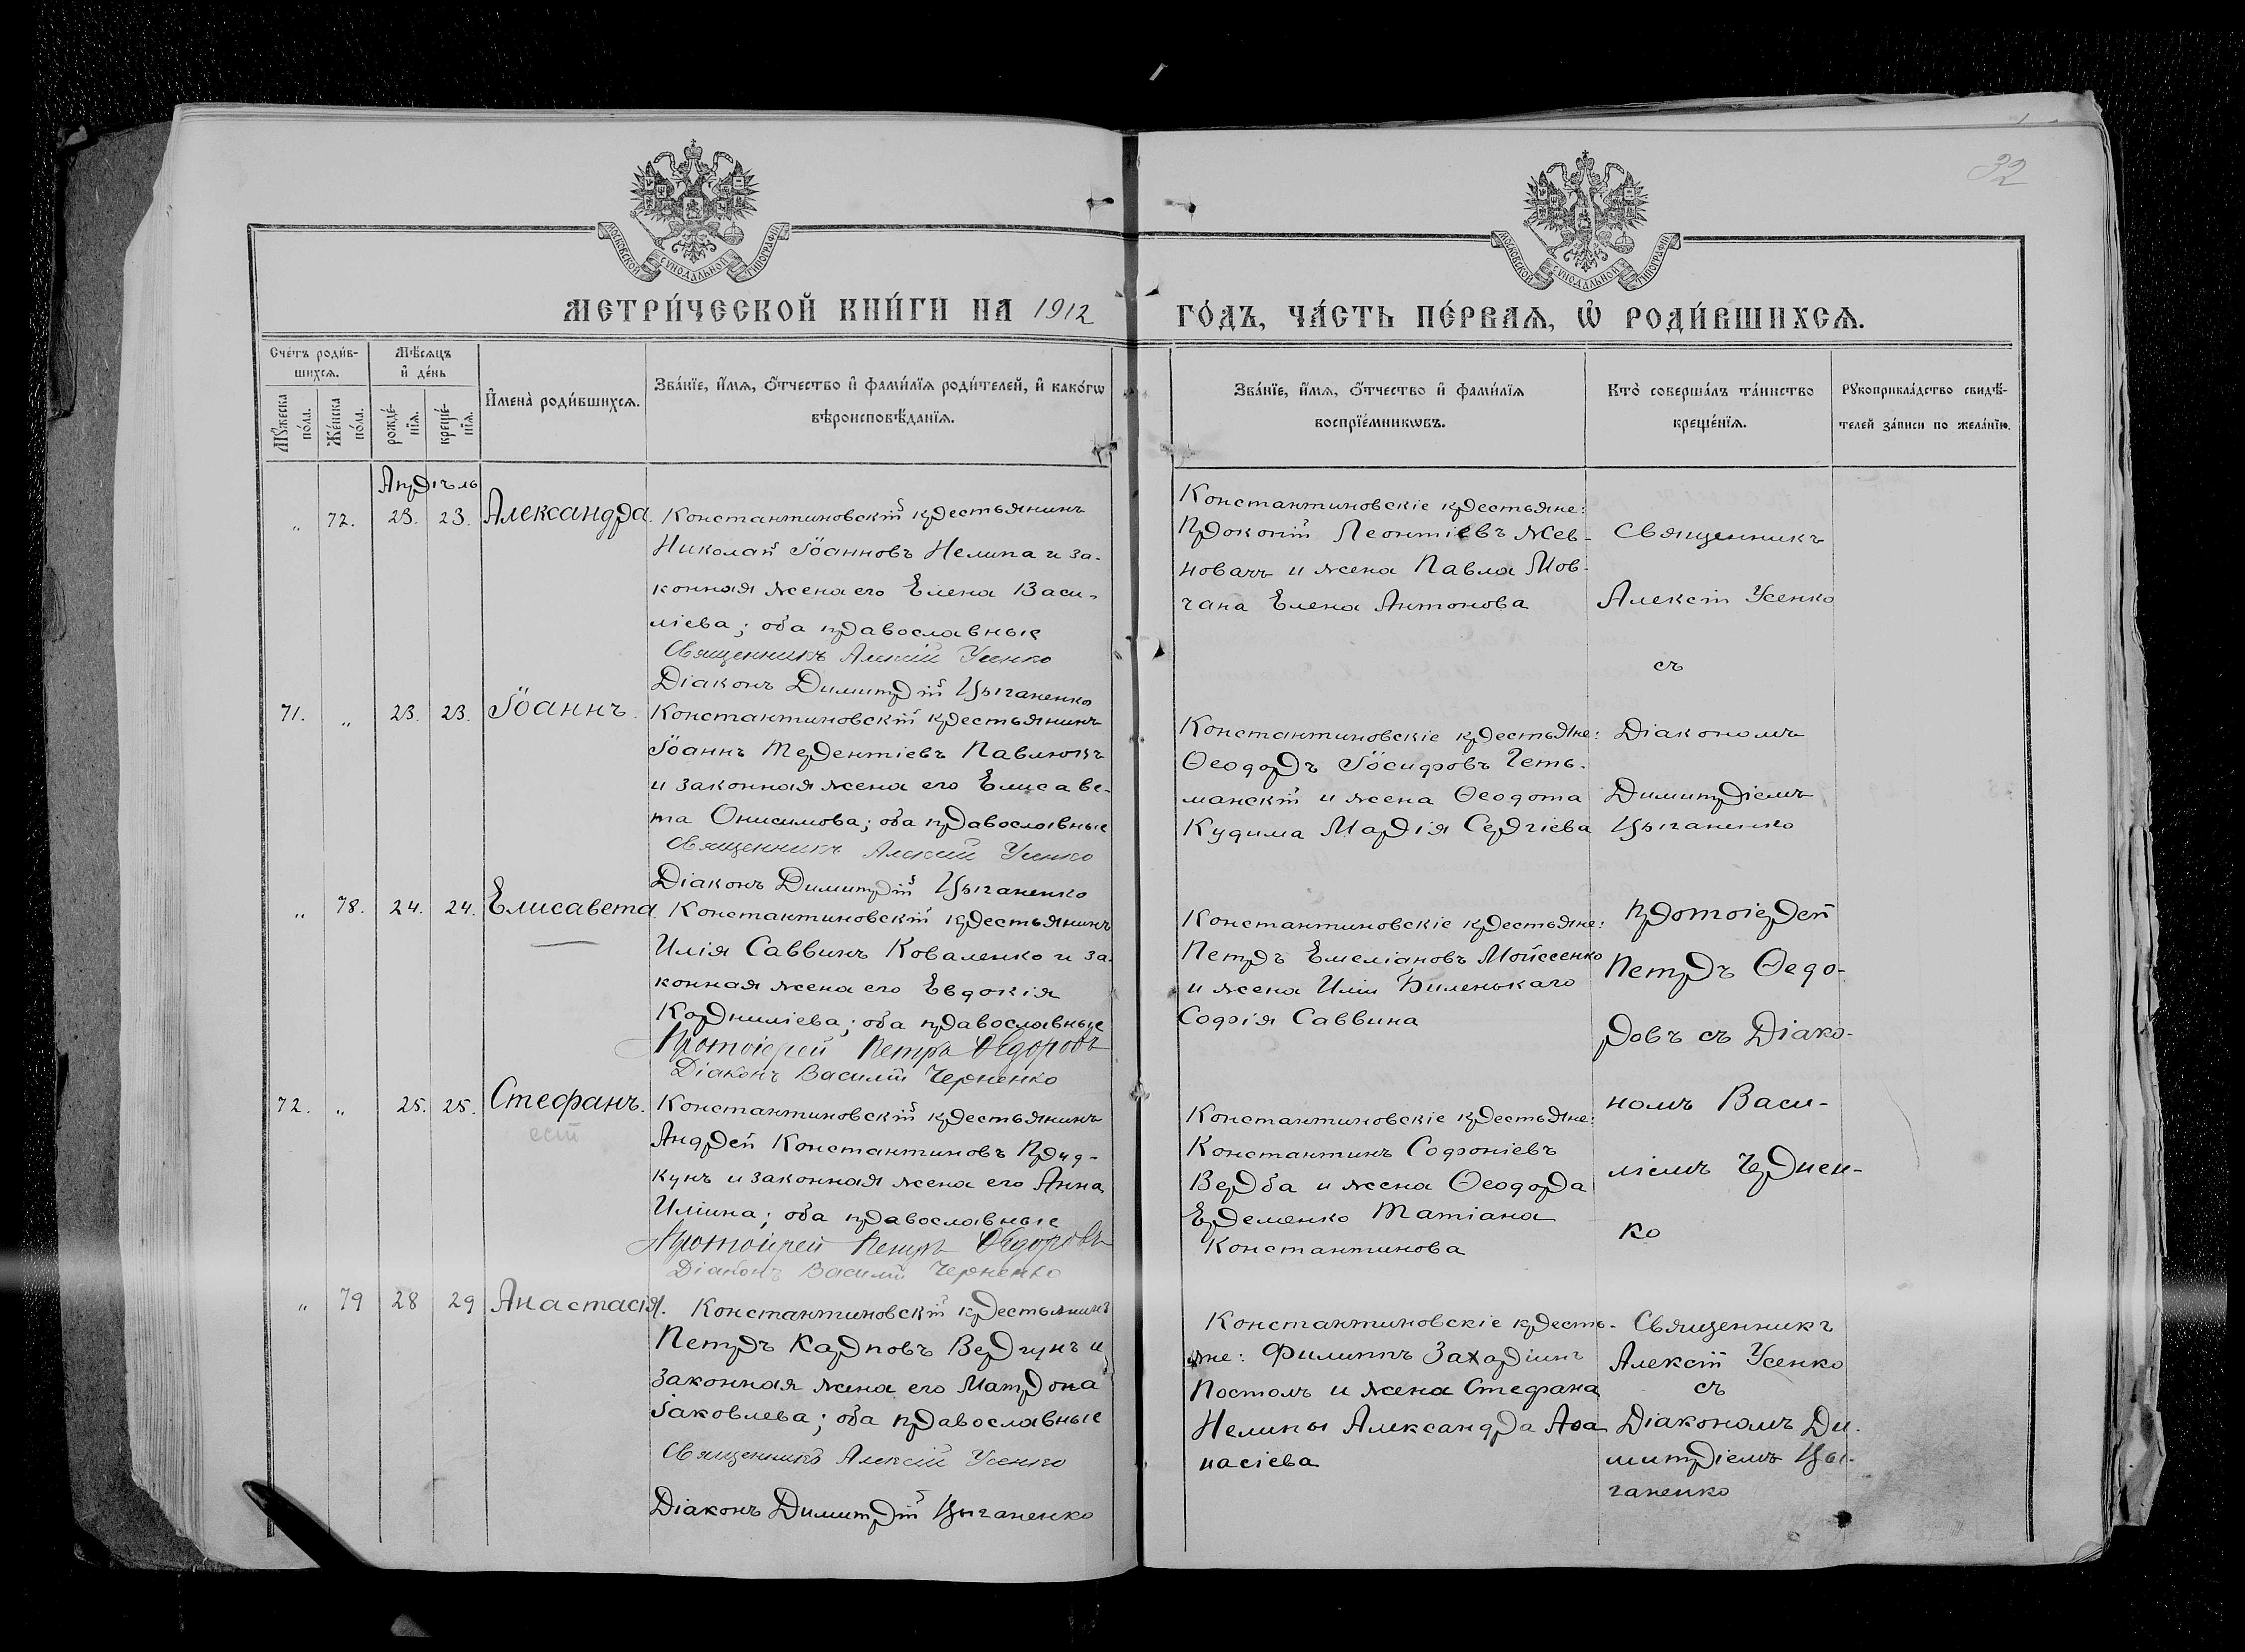 32
МОСКОВСКОЙ СУНОДАЛЬНОЙ ТИПОГРАФІИ
МОСКОВСКОЙ СУНОДАЛЬНОЙ ТИПОГРАФІИ
МЕТРИ́ЧЕСКОЙ КНИ́ГИ НА 1912
ГО́ДЪ, ЧА́СТЬ ПЕ́РВАѦ, Ѡ҆ РОДИ́ВШИХСѦ.
Сче́тъ роди́в-
шихсѧ.
Мѣ́сѧцъ
и҆ де́нь
И҆мена̀ роди́вшихсѧ.
Зва́нїе, и҆́мѧ, ѻ҆́тчество и҆ фами́лїѧ роди́телей, и҆ како́гѡ
вѣроисповѣ́данїѧ.
Мꙋ́жеска
по́ла.
Же́нска
по́ла.
рожде́-
нїѧ.
креще́-
нїѧ.
Зва́нїе, и҆́мѧ, ѻ҆́тчество и҆ фами́лїѧ
воспрїе́мникѡвъ.
Кто̀ соверша́лъ та́инство
креще́нїѧ.
Рꙋкоприкла́дство свидѣ́-
телей за́писи по жела́нїю.
Апрѣль
„ 72. 23. 23. Александра. Константиновскій крестьянинъ
Николай Іоанновъ Нелипа и за-
конная жена его Елена Васи-
ліева; оба православные
Священникъ Алексій Усенко
Діаконъ Димитрій Цыганенко
Константиновскіе крестьяне:
Прокопій Леонтіевъ Жев-
новачъ и жена Павла Мов-
чана Елена Антонова
Священникъ
Алексій Усенко
съ
71. „ 23. 23. Іоаннъ. Константиновскій крестьянинъ
Іоаннъ Терентіевъ Павлюкъ
и законная жена его Елисаве-
та Онисимова; оба православные
Священникъ Алексій Усенко
Діаконъ Димитрій Цыганенко
Константиновскіе крестьяне:
Ѳеодоръ Іосифовъ Геть-
манскій и жена Ѳеодота
Кудима Марія Сергіева
Діакономъ
Димитріемъ
Цыганенко
„ 78. 24. 24. Елисавета. Константиновскій крестьянинъ
Илія Саввинъ Коваленко и за-
конная жена его Евдокія
Корниліева; оба православные
Протоіерей Петръ Ѳедоровъ
Діаконъ Василій Черненко
Константиновскіе крестьяне:
Петръ Емеліановъ Мойсеенко
и жена Иліи Биленькаго
Софія Саввина
Протоіерей
Петръ Ѳедо-
ровъ съ Діако-
номъ Васи-
ліемъ Чернен-
ко
72. „ 25. 25. Стефанъ. Константиновскій крестьянинъ
Андрей Константиновъ Прид-
кунъ и законная жена его Анна
Иліина; оба православные
Протоіерей Петръ Ѳедоровъ
Діаконъ Василій Черненко
Константиновскіе крестьяне:
Константинъ Софроніевъ
Верба и жена Ѳеодора
Еременко Татіана
Константинова
„ 79 28 29 Анастасія. Константиновскій крестьянинъ
Петръ Карповъ Вергунъ и
законная жена его Матрона
Іаковлева; оба православные
Священникъ Алексій Усенко
Діаконъ Димитрій Цыганенко
Константиновскіе кресть-
яне: Филиппъ Захаріинъ
Постолъ и жена Стефана
Нелипы Александра Аѳа
насіева
Священникъ
Алексій Усенко
съ
Діакономъ Ди-
митріемъ Цы-
ганенко